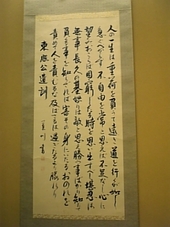 人の一生は重荷を負て遠き道を行が如し
急くへからす不自由を常と思へは不足なし心に
望おこらは困窮したる時を思ひ出すへし堪忍は
無事長久の基怒は敵と思へ勝事はかり知りて
負る事を知らされは害其の身にいたるおのれを
責て人を責むるな及はさるは過たるより勝れり
東照公遺訓